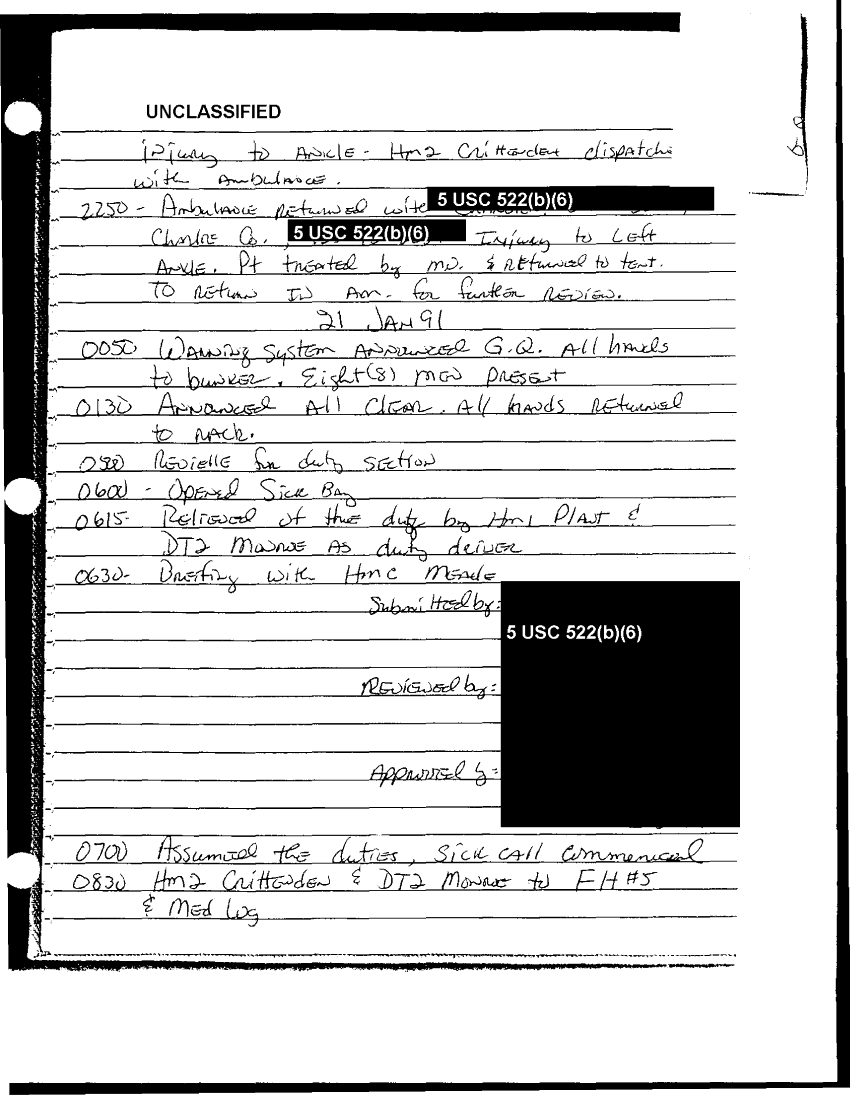 UNCLASSIFIED
Injury to Ankle - Hm2 Crittenden dispatche
with Ambulance.
2250 - Ambulance Returned with 5 USC 522(b)(6)
Charlie Co. 5 USC 522(b)(6) Injury to Left
Ankle. Pt treated by MD. & Returned to tent.
To Return IN Am. for further Review.
21 JAN 91
0050 Warning System Announced G.Q. All hands
to bunker. Eight (8) men present
0130 Announced All Clear. All hands Returned
to Rack.
0500 Revielle for duty section
0600 - Opened Sick Bay
0615- Relieved of the duty by Hm1 Plant &
DT2 Monroe As duty driver
0630- Briefing with HMC Meade
Submitted by:
5 USC 522(b)(6)
Reviewed by:
Approved by:
0700 Assumed the duties, Sick call commenced
0830 Hm2 Crittenden & DT2 Monroe to FH#5
& Med Log